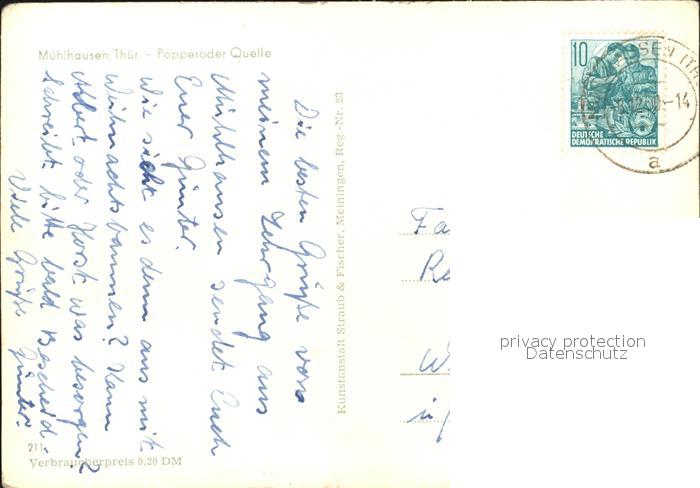 Mühlhausen/Thür. - Popperoder Quelle
Die besten Grüße von
meinem Lehrgang aus
Mühlhausen sendet Euch
Euer Günter.
Wie sieht es denn aus mit
Weihnachtsbäumen? Kann
Albert oder Horst was besorgen?
Schreibt bitte bald Bescheid.
Viele Grüße Günter.
211
Verbraucherpreis 0,20 DM
Kunstanstalt Straub & Fischer, Meiningen, Reg.-Nr. 23
10
DEUTSCHE
DEMOKRATISCHE REPUBLIK
a
Fa
privacy protection
Datenschutz